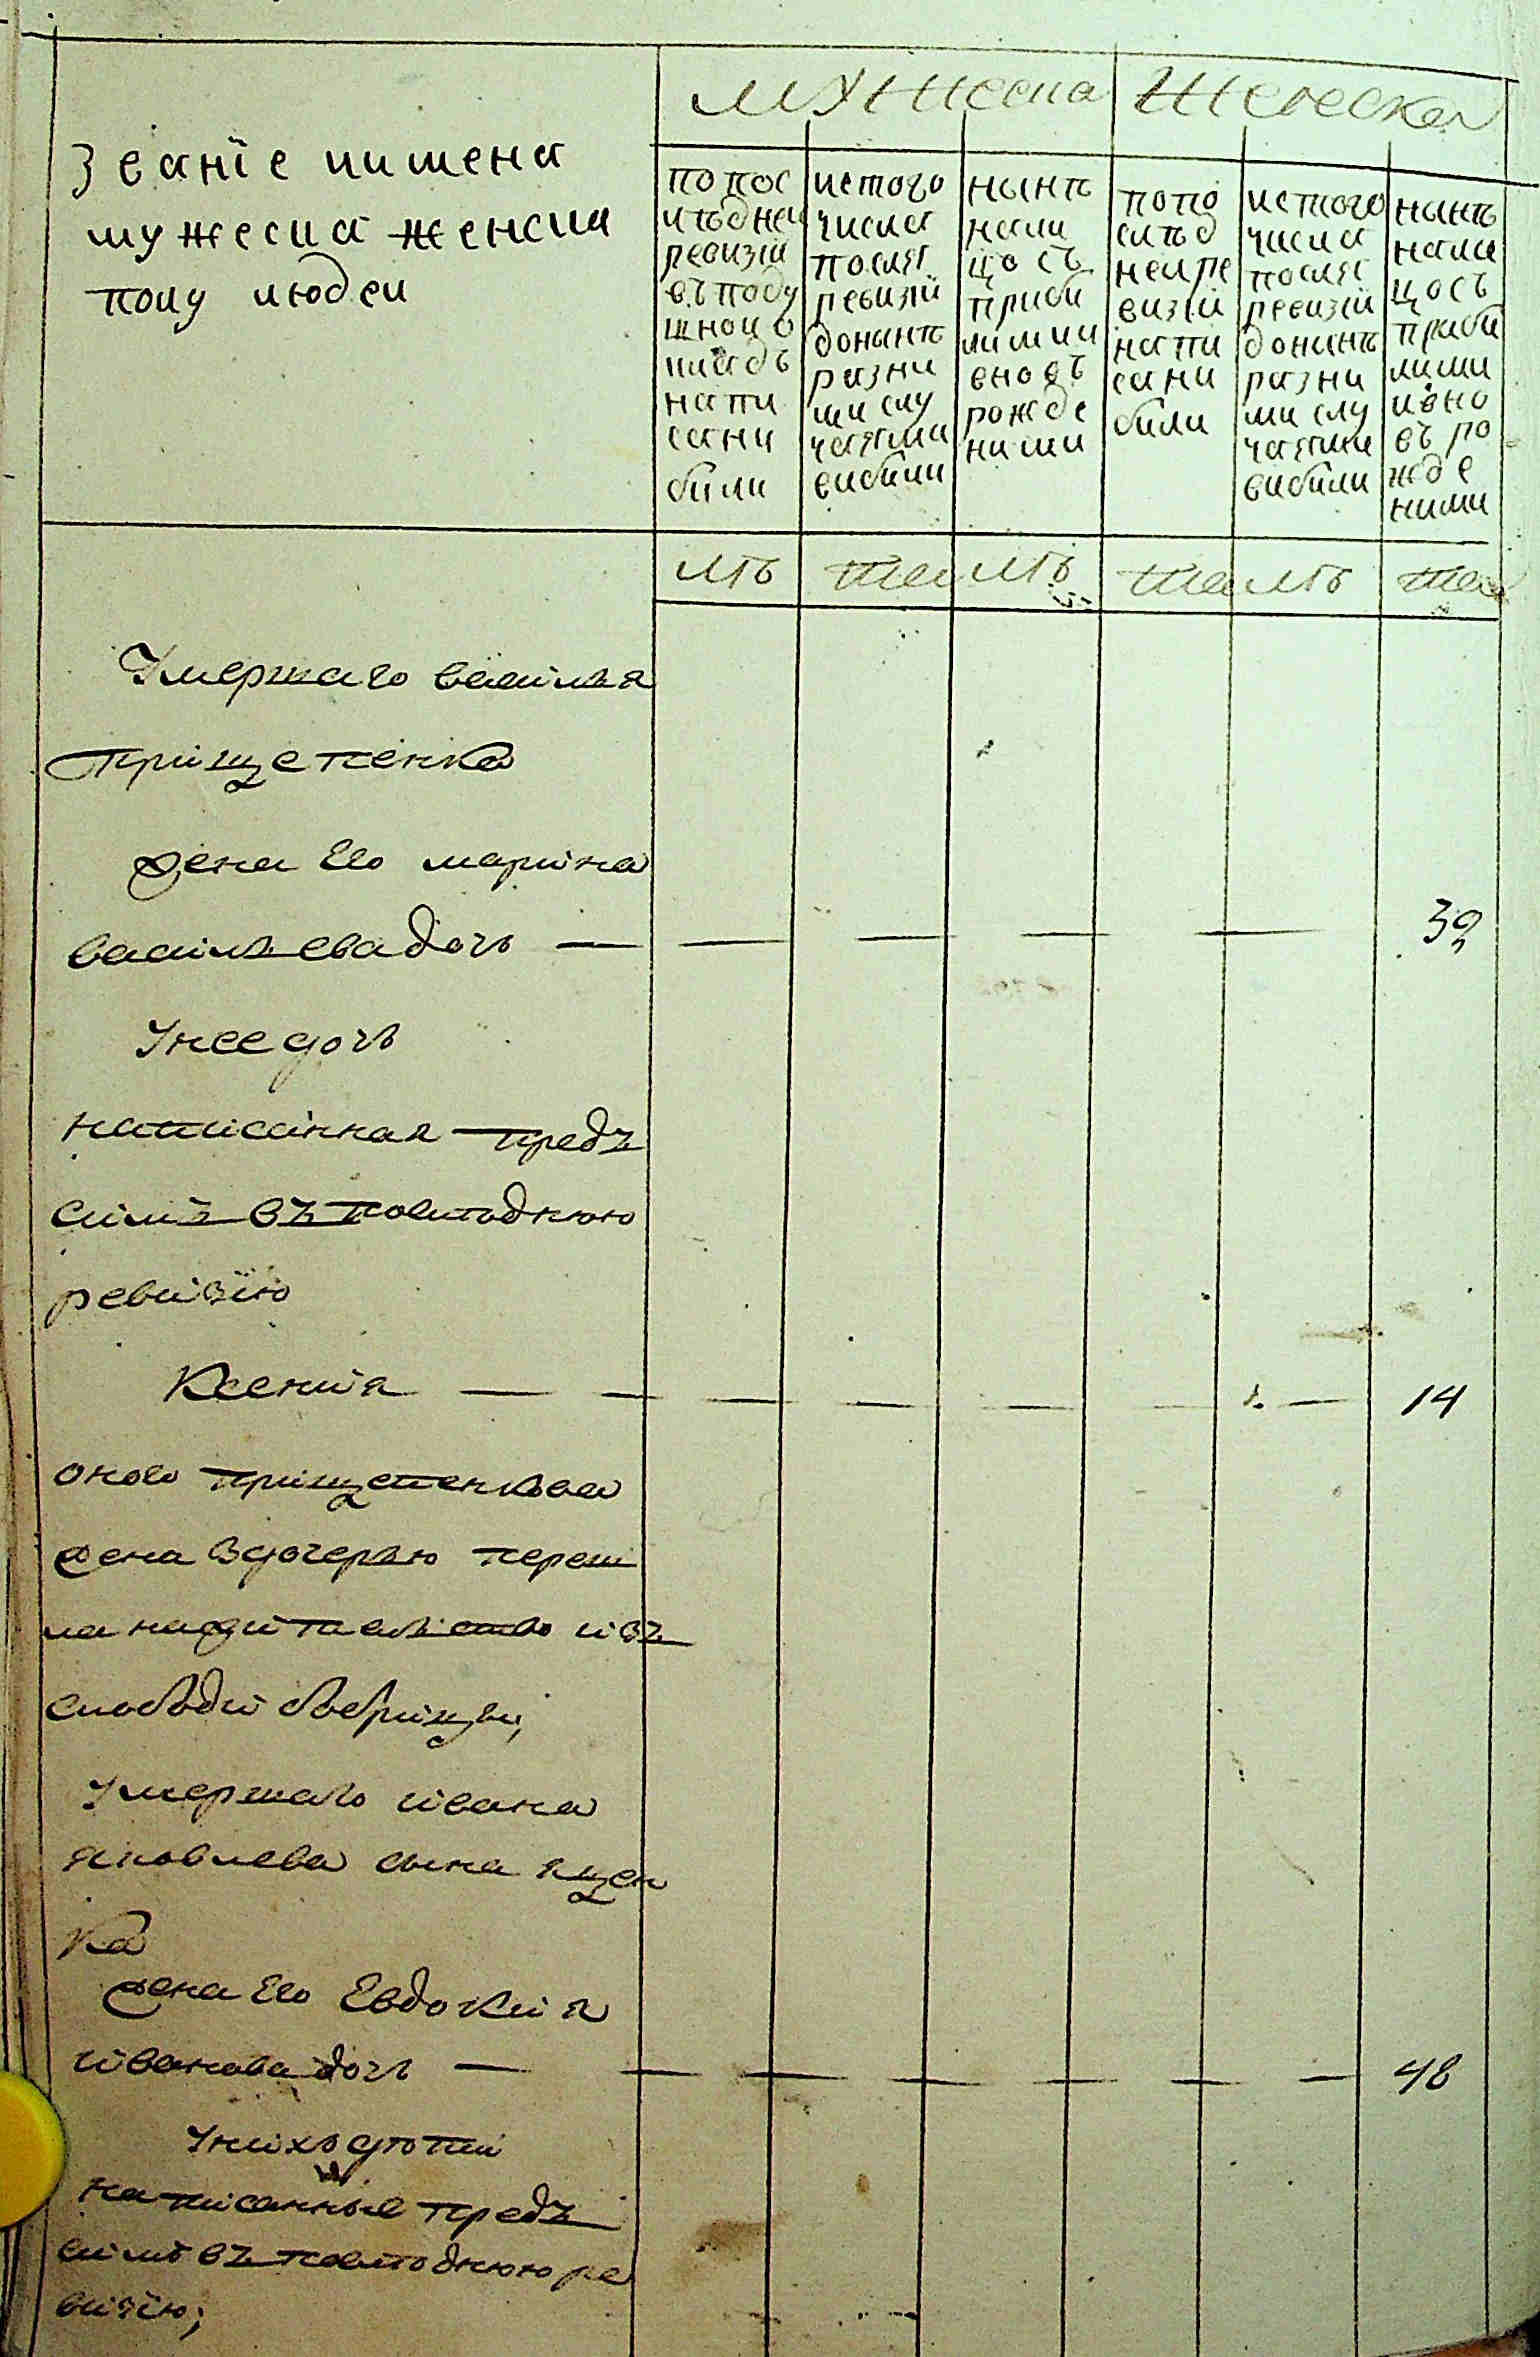 мужеска
женска
званїе иимена
мужеска женска
полу людеи
попос
лѣднеи
ревизїи
въподу
шномо
кладъ
напи
сани
били
истого
числа
послѣ
ревизїи
донынѣ
разни
ми слу
чаями
вибили
нынѣ
нали
цосъ
приби
лими и
вновъ
рожде
ними
попо
слѣд
неире
визїи
напи
сани
били
истого
числа
послѣ
ревизїи
донынѣ
разни
ми слу
чаями
вибили
нынѣ
нали
цосъ
приби
лими
ивно
въ ро
жде
ними
лѣ
та
лѣ
та
лѣ
та
Умершаго василья
прищепенка
жена его марина
васильева дочь — 39
Унее дочь
написанная предъ
симъ въ последнюю
ревизїю
Ксения — 14
оного прищепенкова
жена здочерью переш
ла нажителство изъ
слободи бобрищи;
Умершаго ивана
яковлева сына яцен
ка
жена его Евдокия
иванова дочь — 48
Унихъ дѣти
написанные предъ
симъ въ последнюю ре
визїю;